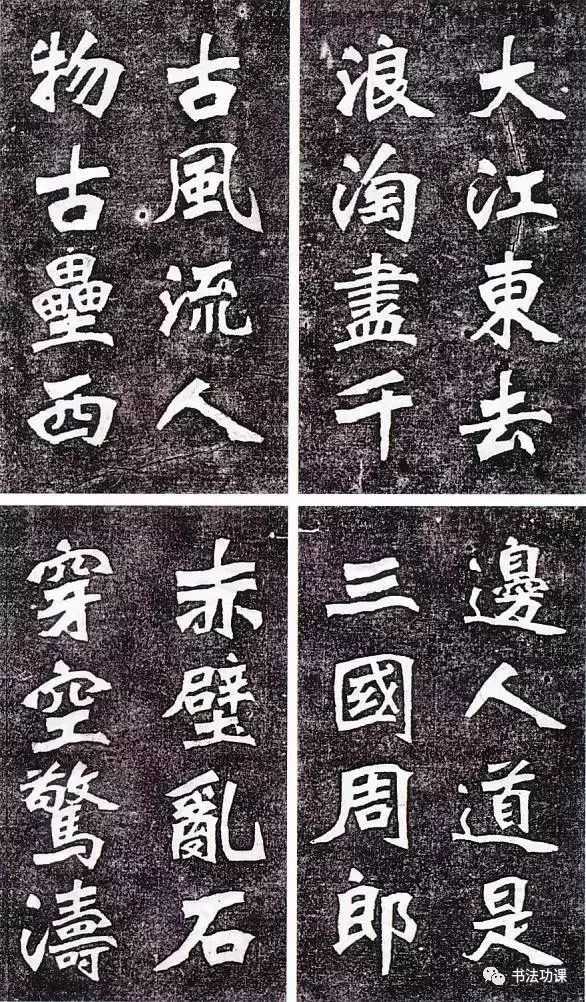 大江東去
浪淘盡千
古風流人
物古壘西
邊人道是
三國周郎
赤壁亂石
穿空驚濤
书法功课